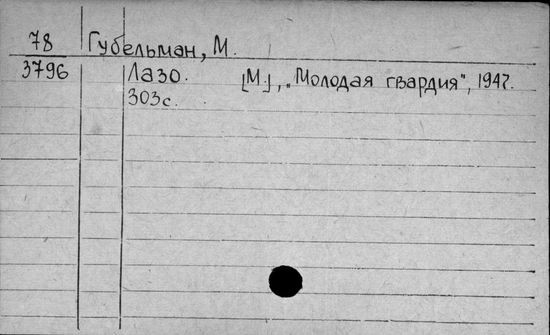 78 Губельман, М.
3796 Лазо. [М.], „Молодая гвардия", 1947.
303с.